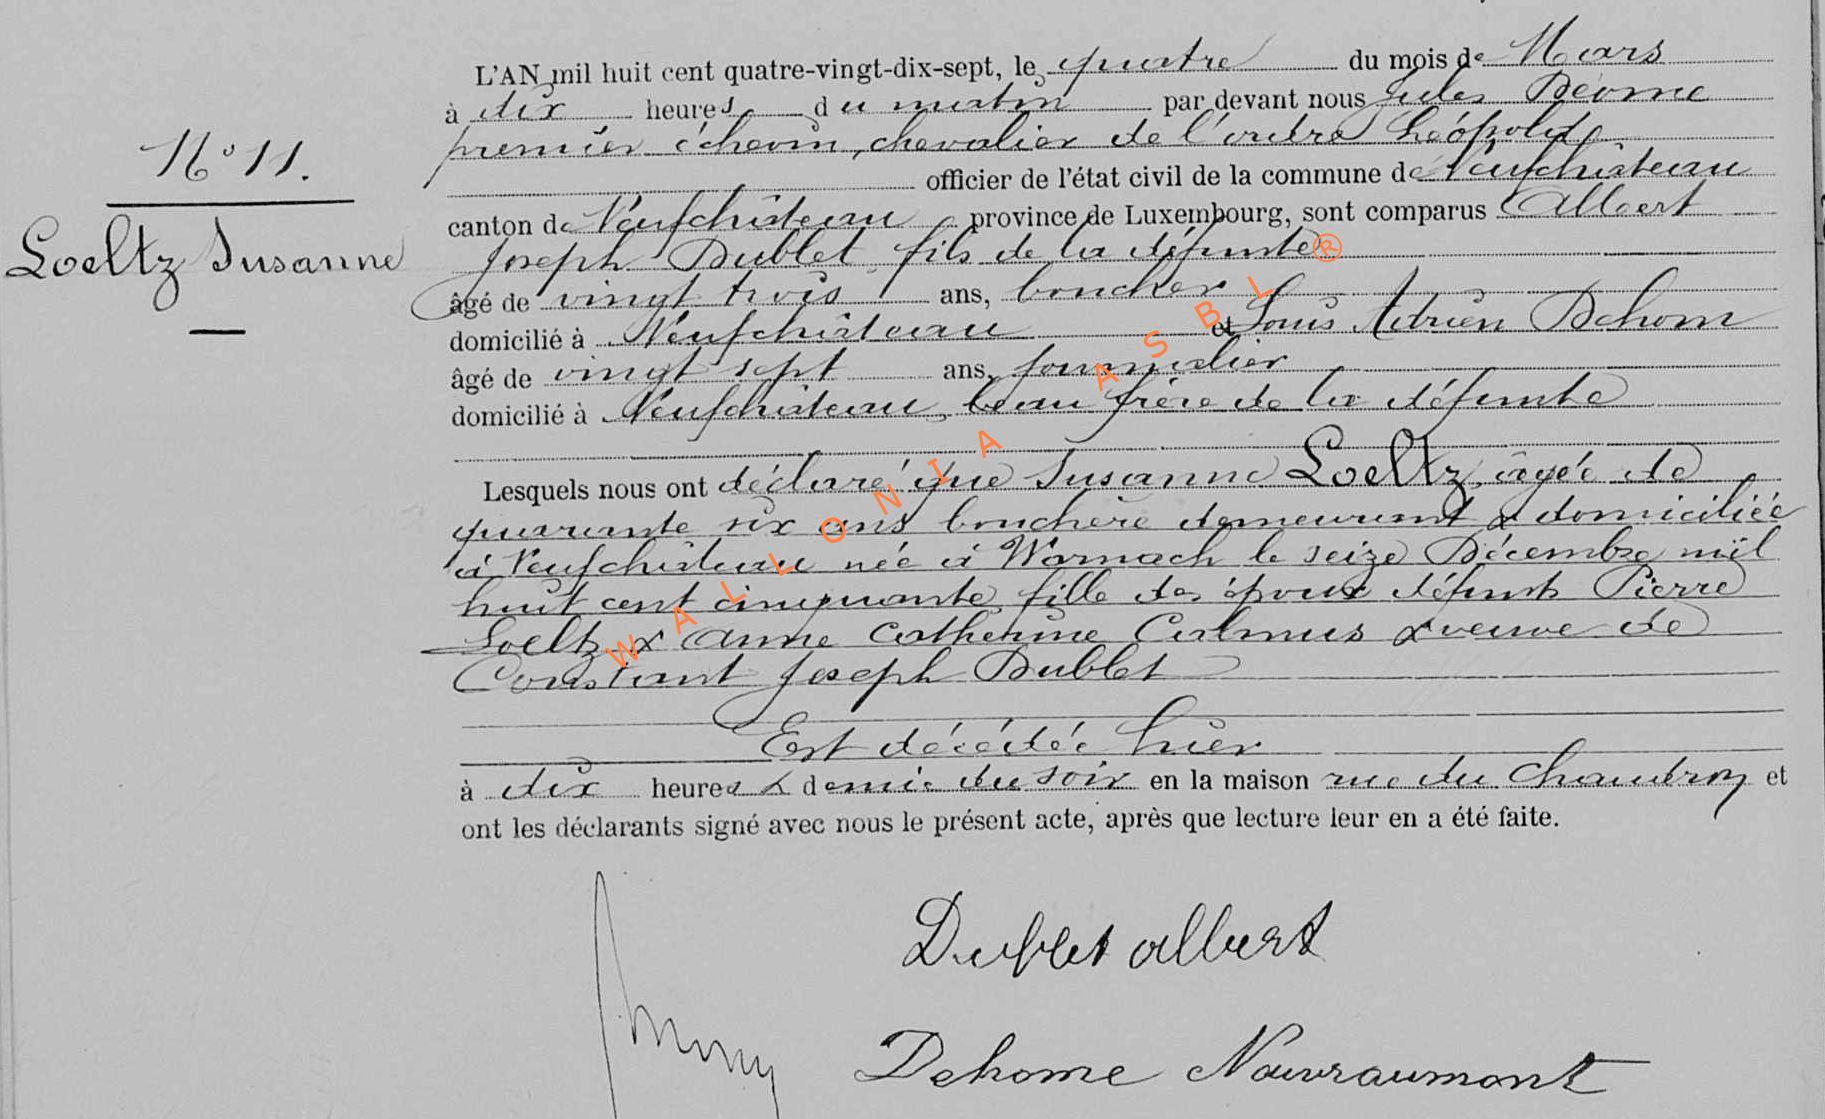 L'AN mil huit cent quatre-vingt-dix-sept, le quatre du mois de Mars
à dix heures du matin par devant nous Jules Déome
premier échevin, chevalier de l'ordre Léopold
officier de l'état civil de la commune de Neufchâteau
canton de Neufchâteau province de Luxembourg, sont comparus Albert
Joseph Dublet fils de la défunte
âgé de vingt trois ans, boucher
domicilié à Neufchâteau et Louis Adrien Dehom
âgé de vingt sept ans, journalier
domicilié à Neufchâteau, beau frère de la défunte
Lesquels nous ont déclaré que Susanne Loeltz, âgée de
quarante six ans bouchère demeurant & domiciliée
à Neufchâteau née à Warnach le seize Décembre mil
huit cent cinquante fille des époux défunts Pierre
Loeltz & Anne Catherine Calmus & veuve de
Constant Joseph Dublet
Est décédée hier
à dix heures & demie du soir en la maison rue du Chaudron et
ont les déclarants signé avec nous le présent acte, après que lecture leur en a été faite.
N° 11.
Loeltz Susanne
Dublet albert
Dehome Nouvraumont
WALLONIA ASBL ®